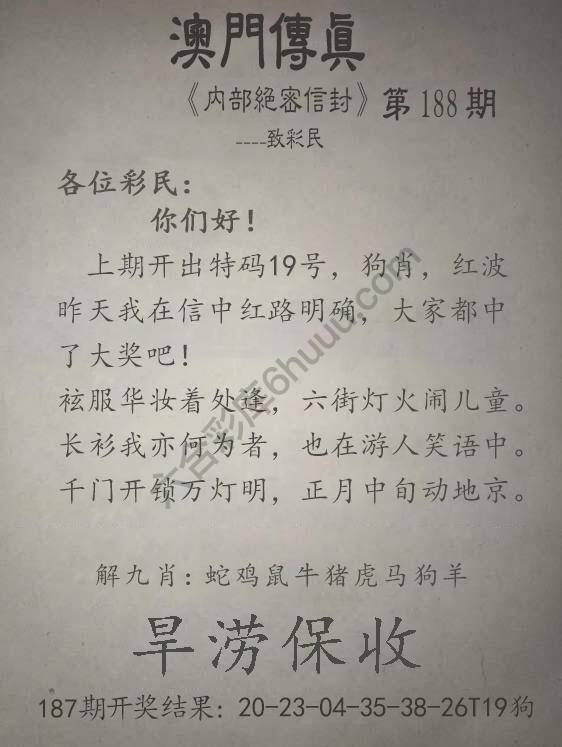 澳門傳眞
《内部絕密信封》第188期
----致彩民
各位彩民：
你们好！
上期开出特码19号，狗肖，红波
昨天我在信中红路明确，大家都中
了大奖吧！
袨服华妆着处逢，六街灯火闹儿童。
长衫我亦何为者，也在游人笑语中。
千门开锁万灯明，正月中旬动地京。
六合彩库6huuu.com
解九肖：蛇鸡鼠牛猪虎马狗羊
旱涝保收
187期开奖结果：20-23-04-35-38-26T19狗